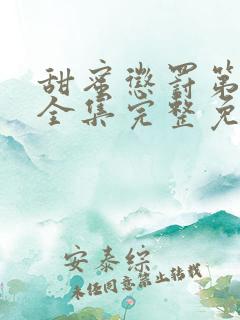 甜蜜惩罚第
全集完整免
安泰综
未经同意禁止转载